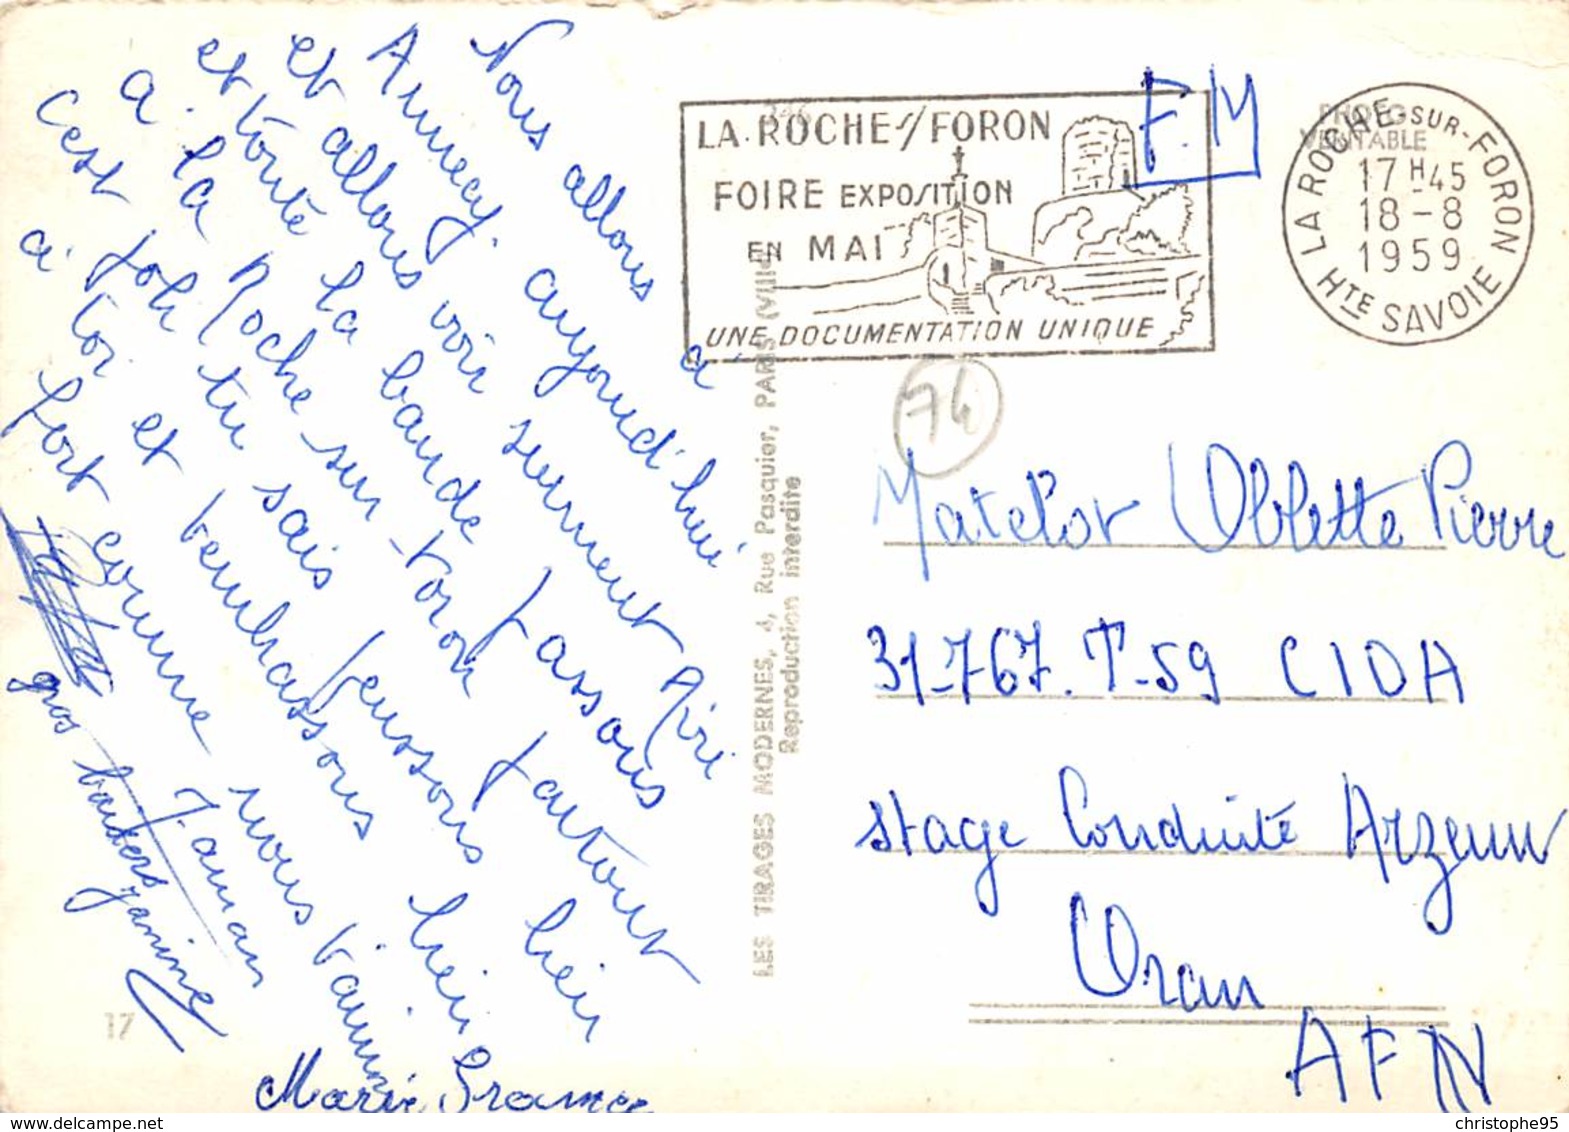 Nous allons à
Annecy. aujourd'hui
et allons voir surement Riri
et toute la bande passons
à la Roche sur-Foron partout
c'est joli tu sais pensons bien
à toi et t'embrassons bien
fort comme nous t'aimons
Maman
gros baisers Janine
Marie France
17
LES TIRAGES MODERNES, 4, Rue Pasquier, PARIS (VIIIe)
Reproduction interdite
346
LA ROCHE S/ FORON
FOIRE EXPOSITION
EN MAI
UNE DOCUMENTATION UNIQUE
F.M
PHOTO
VERITABLE
LA ROCHE-SUR-FORON
17H45
18-8
1959
HTE SAVOIE
74
Matelot Obblette Pierre
31-767. T-59 CIOA
stage Conduite Arzew
Oran
AFN
www.delcampe.net
christophe95